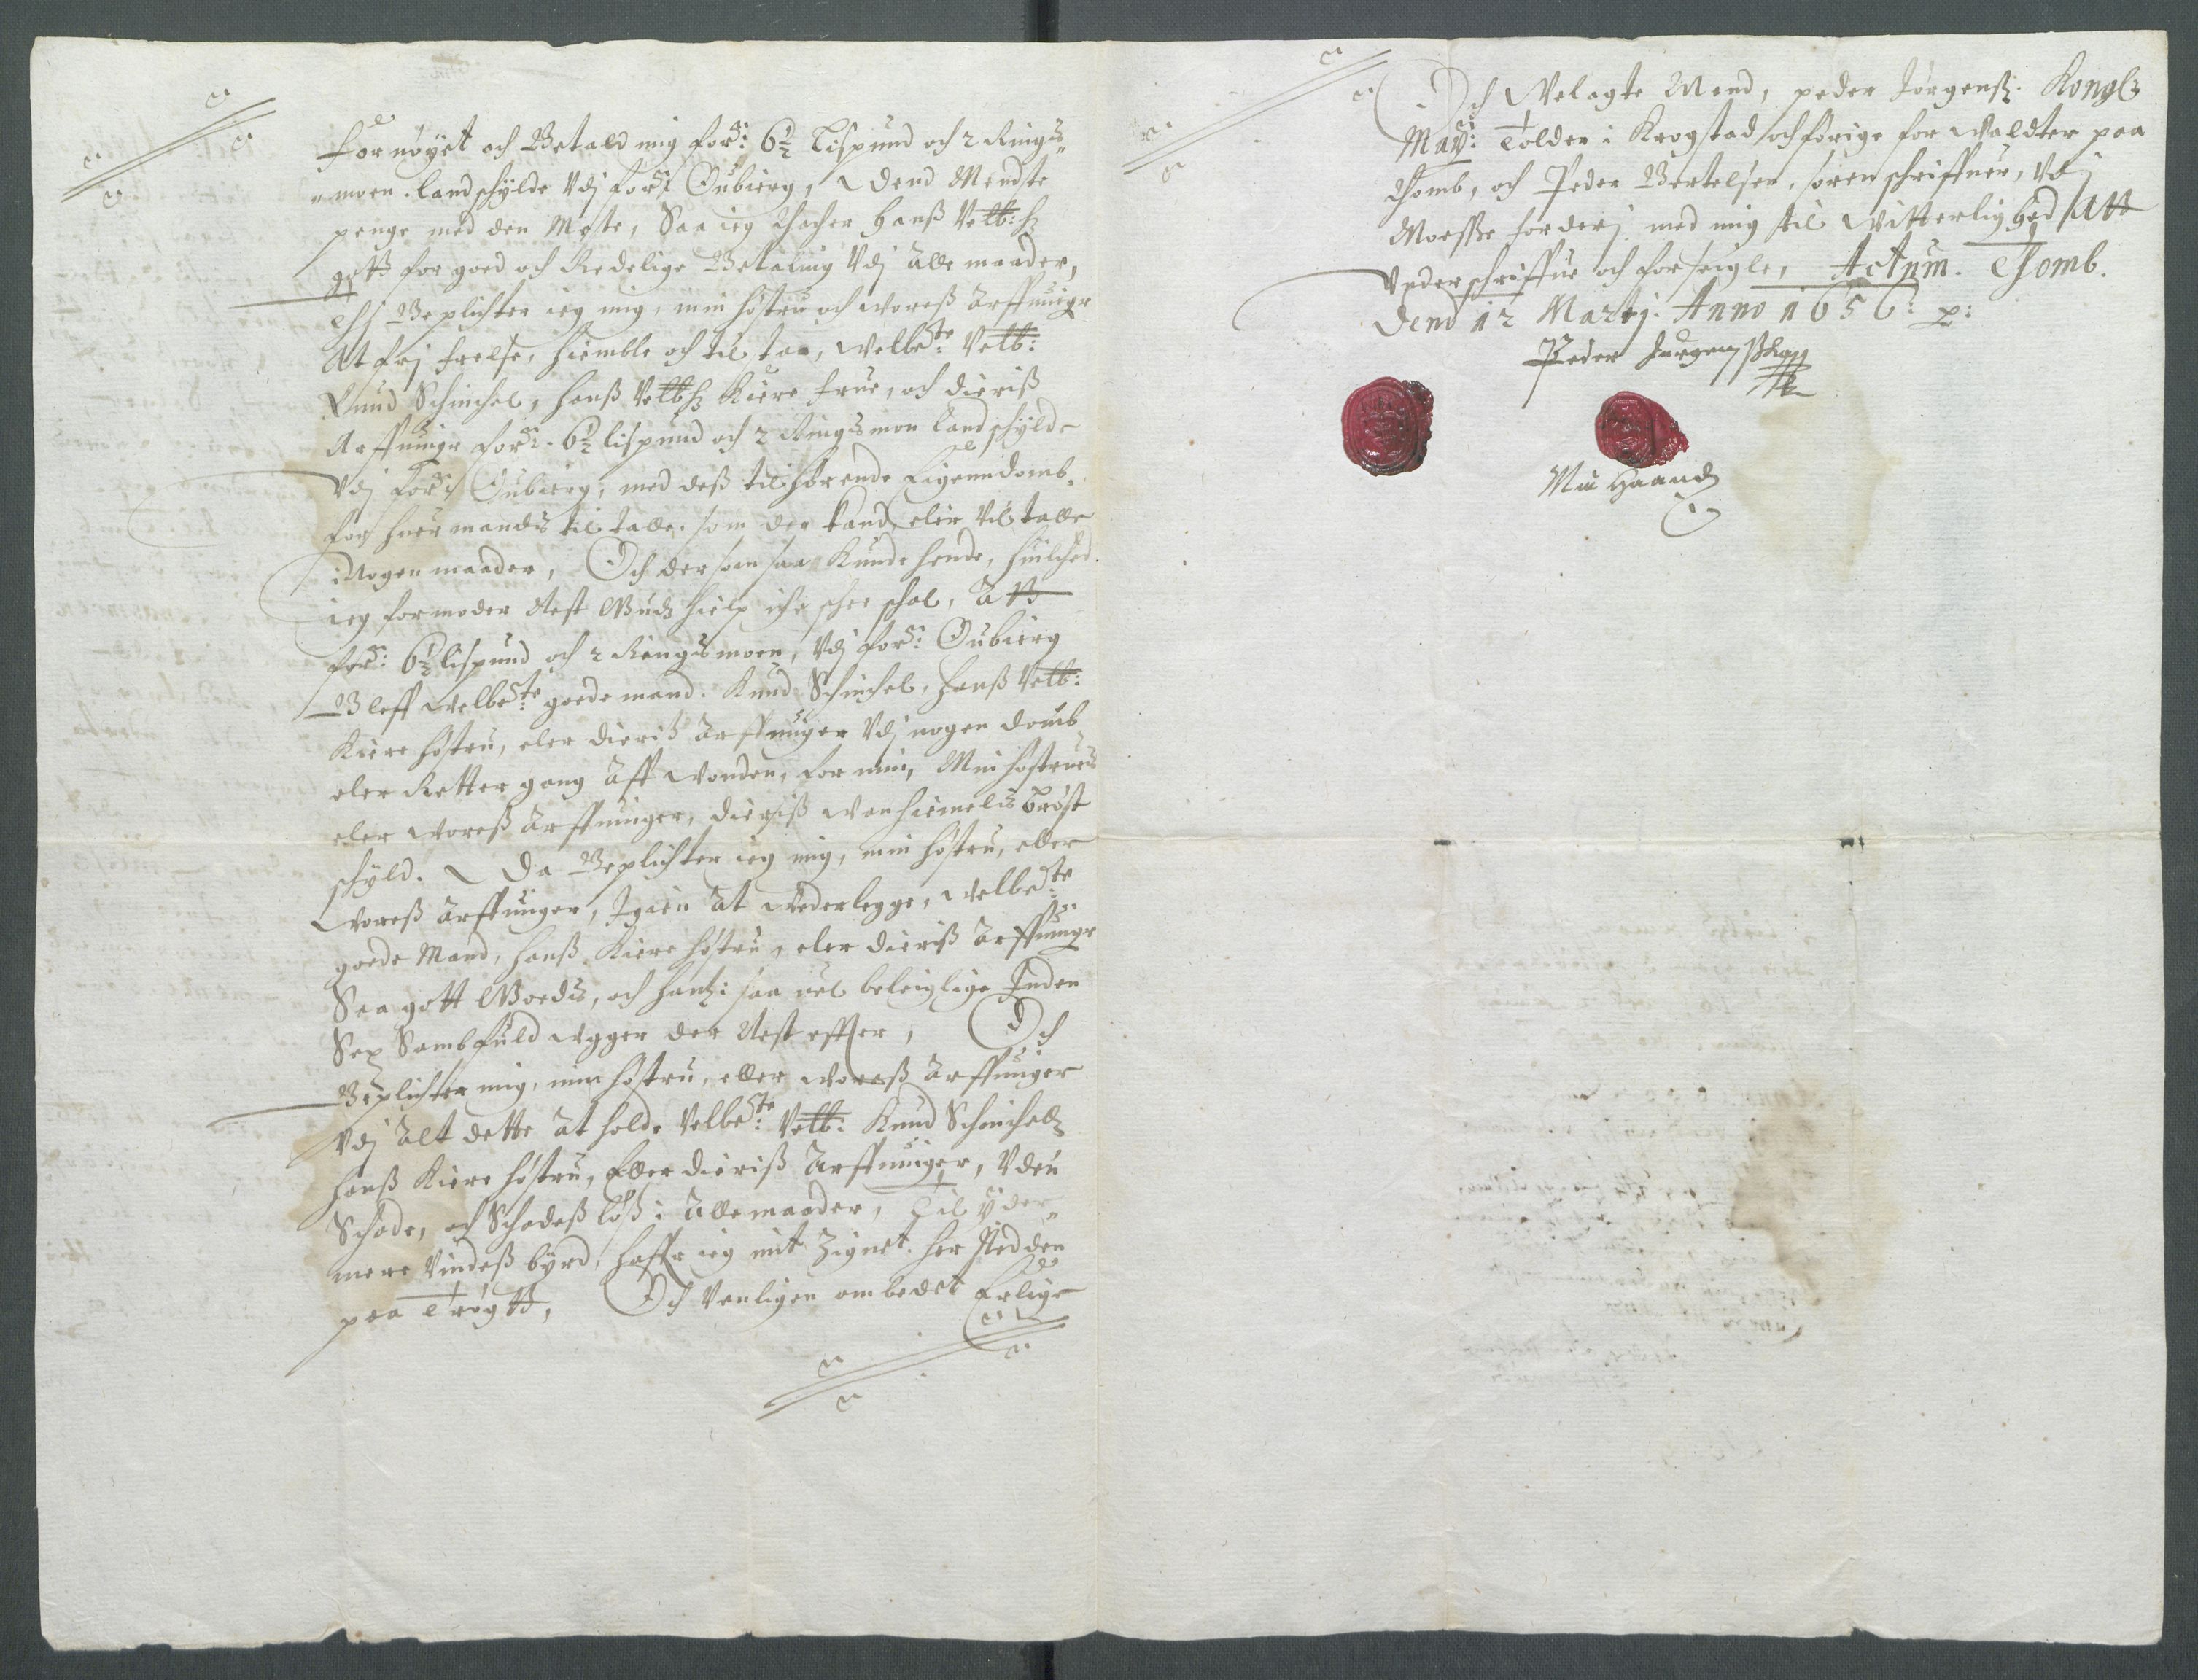 fornøyet och Betald mig forˢ: 6½ Lispund och 2 Rings„
„moen landschylde Vdj forˢ: Oubierg, Dend Mendte
penge med den Mote, Saa ieg thacher hanß Velb:hz
gott for goed och Redelige Betaling Vdj alle maader,
thj Beplichter ieg mig, min høstru och woreß arffuingr
At frj frelse, hiemble och til taa, welbeᵗᵉ: Velb:
Knud Schinchel, hanß Velbhz Kiere frue, och dieriß
Arffuingr forˢ: 6½ lispund och 2 Rings mon landschylde
Vdj forˢ: Oubierg, med deß tilhørende Eigenndomb,
for huer mands til talle, som der kand eler Vil talle
i Nogen maader, Och dersom saa Kunde hende, huilched
ieg formoder Nest Guds hielp iche schee schal, Att
forˢ: 6½ lispund och 2 Ringsmoen, Vdj forˢ: Oubierg
Bleff welbeᵗᵉ: goede mand. Knud Schinchel, hanß Velb:
Kiere høstru, eler dieriß arffuinger Vdj nogen domb
eler Rettergang aff wonden, for min, Min høstrues
eler woreß arffuinger, dieriß wanhiemels brøst
schyld. Da Beplichter ieg mig, min høstru, eller
woreß arffuinger, Igien at wederlegge, welbeᵗᵉ:
goede Mand, hanß Kiere høstru, eler dieriß arffuingr
Saa gott Goeds, och saa uel beleiglige Inden
Sex Sambfuld wgger der Nest effter, Och
Beplichter mig, min høstru, eller woreß arffuinger
Vdj alt dette at holde Velbeᵗᵉ: Velb: Knud Schinchell
hanß Kiere høstru, Eller dieriß Arffuinger, Vden
Schade, och Schadeßløß i Alle maader, Til yder„
mere Vindeß byrd, haffr ieg mit Zignet her Nedden
paa trøgtt, Och Venligen ombedet Erlige
Och Welagte Mend, peder Jørgenß. Kongl
Mayˢ: Tolder i Krogstad och førige forwaldter paa
thomb, och Peder Bertelsen, sorenschriffuer, Vdj
Moesße forderj med mig til Witterlighed Att
Vnderschriffue och forseigle, Actum. Thomb.
Dend 12 Martij. Anno 1656: p:
Peder Jurgens
Min Haand